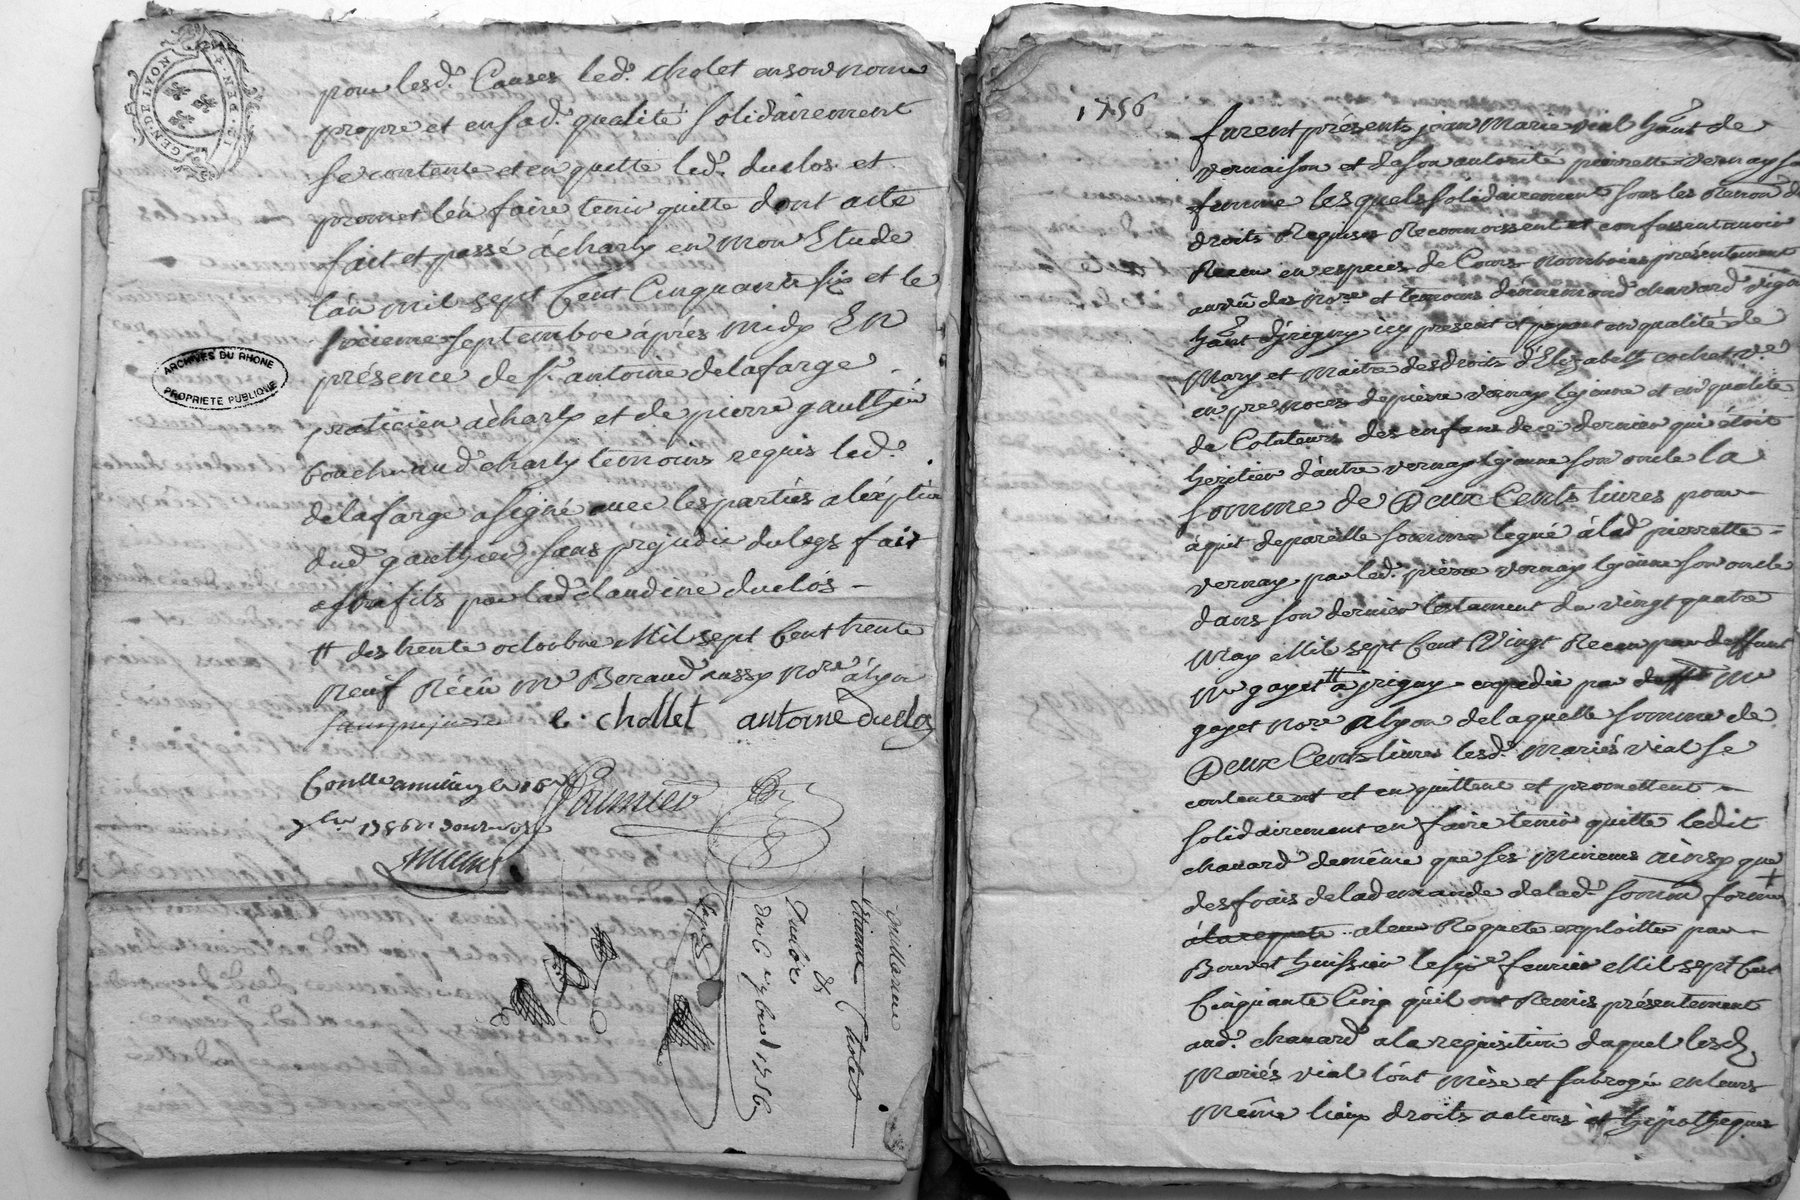 GEN. DE LYON
ARCHIVES DU RHONE
PROPRIETE PUBLIQUE
pour lesd. Causes led. cholet en son nom
propre et en sad. qualité solidairement
se contente et en quitte led. duclos et
promet l'en faire tenir quitte dont acte
fait et passé à charly en mon Etude
l'an mil sept Cent Cinquante six et le
septembre après midy En
présence de sr. antoine delafarge
praticien à charly et de pierre gauthier
dud. charly temoins requis led.
delafarge a signé avec les parties a l'éxption
dud gauthier sans prejudice du legs fait
a par lad. claudine duclos
# des trente octoubre Mil sept Cent trente
Neuf Récû Me Beraud aussy Nore à lyon
c. chollet antoine duclos
1756
etienne Cholet
&
du 6 7bre 1756
1756
furent présents jean Marie vial hant de
vernaison et de son autorité pierrette vernay sa
femme lesquels solidairement sous les Renon de
droits Requises Reconnoissent et confessent avoir
Receu en especes de Cours Nombrées présentement
au vû des Nore et temoins chanard
hant d'jrigny icy present et payant en qualité de
Mary et Maitre des droits d'Elizabeth cochet ve
en pre Noces de pierre vernay lejeune et en qualité
de Cotuteur des enfans de ce dernier qui étoit
heritier d'autre vernay lejeune son oncle la
somme de Deux Cents livres pour
aquit de pareille somme legué à lad pierrette
vernay par led. pierre vernay lejeune son oncle
dans son dernier testament du vingt quatre
May Mil sept Cent Vingt Receu par deffunt
Me gayet # à jrigny expedié par Me
gayet Nore a lyon de laquelle somme de
Deux Cents livres lesd. Mariés vial se
contentent et en quittent et promettent
solidairement en faire tenir quitte ledit
chanard de même que ses Mineurs ainsy que
des frais de la demande de lad. somme formée
a leur Requete exploitté par
Huissier le six fevrier Mil sept Cent
Cinquante Cinq qu'il ont Remis présentement
aud. chanard a la requisition duquel lesd.
Mariés vial l'ont Mise et subrogé en leurs
Même lieux droits actions et hipotheques